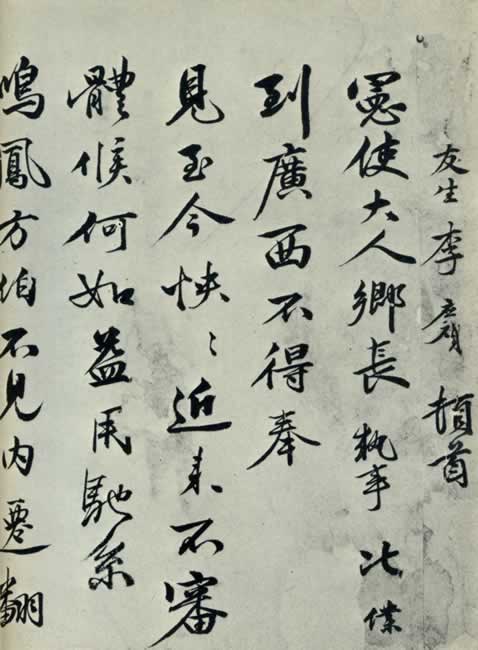 友生李頓首
憲使大人鄉長執事比僕
到廣西不得奉
見至今怏〻近來不審
體候何如益用馳系
鳴鳳方伯不見內遷翻